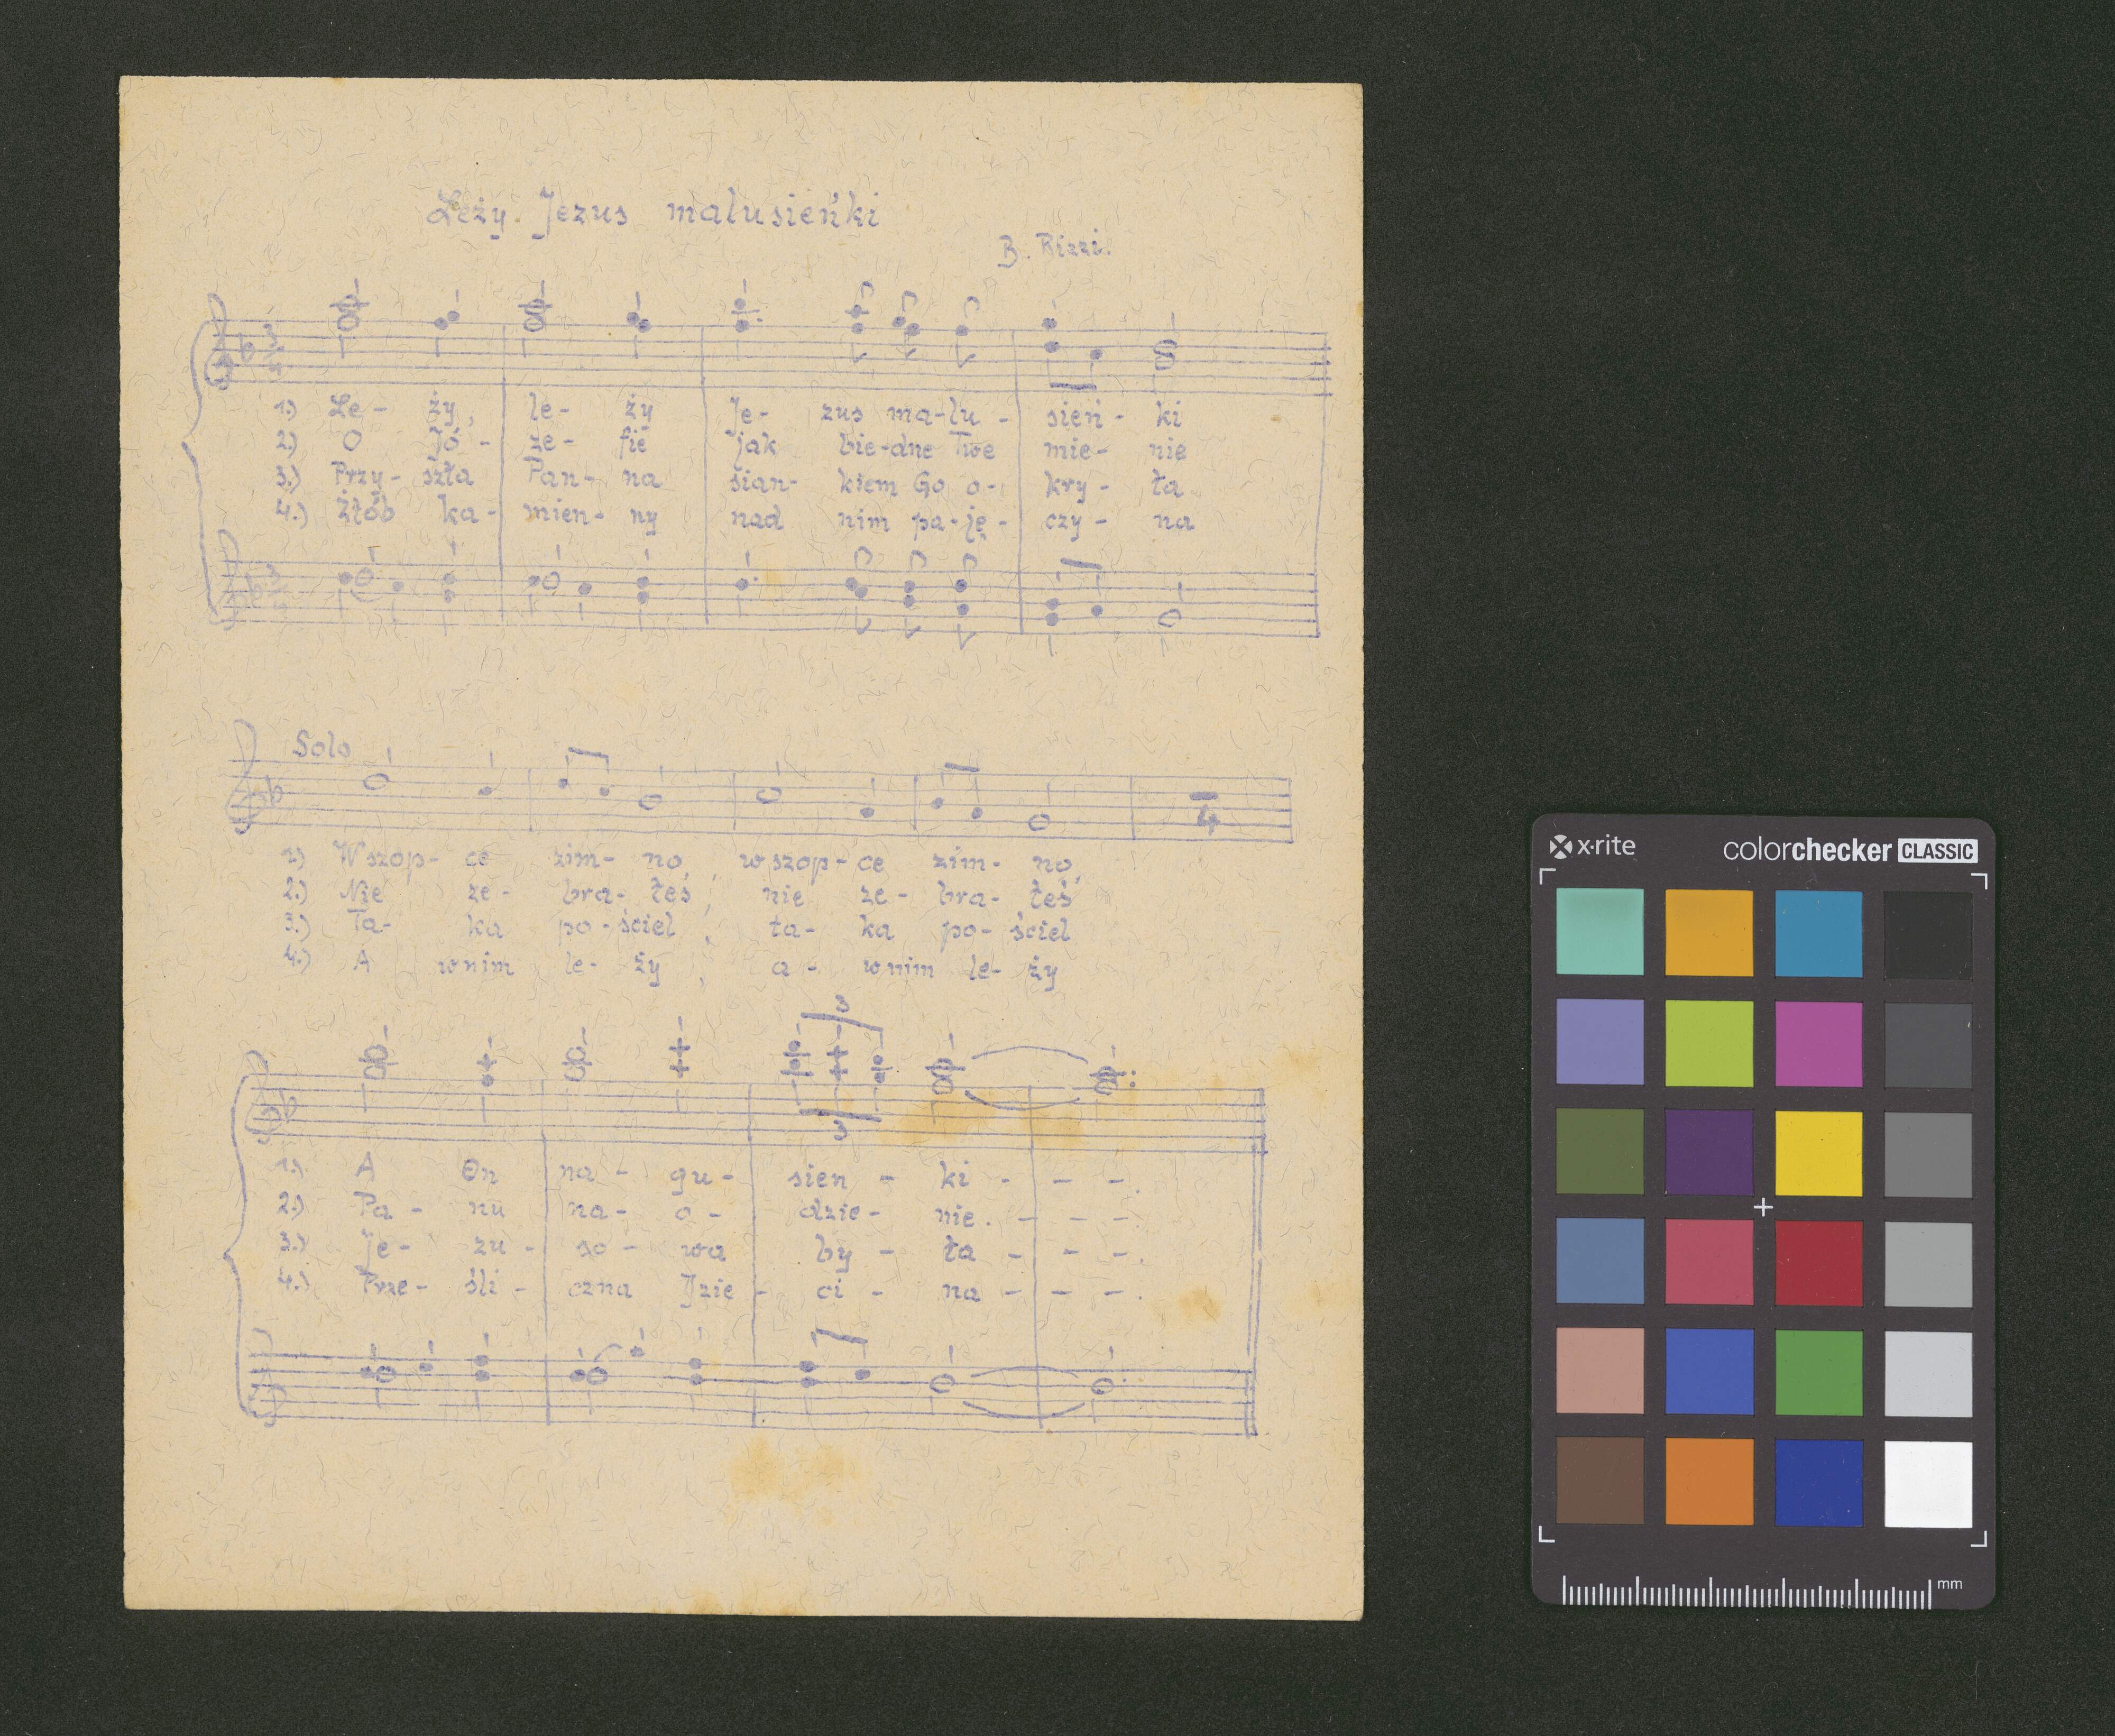 Leży Jezus malusieńki
B. Rizzi.
1.) Le- ży, le- ży Je- zus ma-lu- sień- ki
2.) O Jó- ze- fie jak bie-dne Twe mie- nie
3.) Przy- szła Pan- na sian- kiem Go o- kry- ła
4.) Żłób ka- mien- ny nad nim pa-ję- czy- na
Solo
4
1) W szop- ce zim- no, w szop- ce zim- no,
2.) Nie ze- bra- łeś, nie ze- bra- łeś
3.) Ta- ka po- ściel, ta- ka po- ściel
4.) A w nim le- ży, a- w nim le- ży
3
3
1.) A On na- gu- sien- ki - - -.
2.) Pa- nu na- o- dzie- nie. - - -.
3.) Je- zu- so- wa by- ła - - -.
4.) Prze- śli- czna Dzie- ci- na - - -.
x-rite
colorchecker CLASSIC
mm